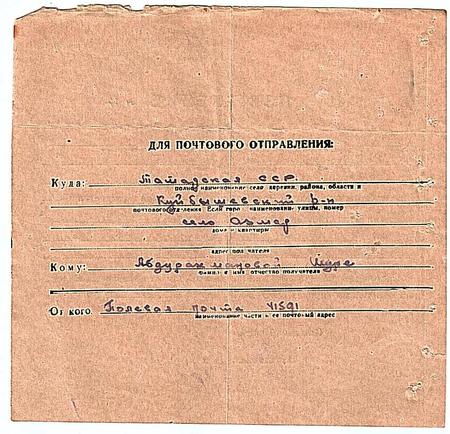 ДЛЯ ПОЧТОВОГО ОТПРАВЛЕНИЯ:
Куда: Татарская ССР.
полное наименование села, деревни, района, области и
Куйбышевский р-н
почтового отделения. Если город наименование улицы, номер
село
дома и квартиры
адрес получателя
Кому: Абдурахмановой
фамилия имя отчество получателя
От кого Полевая почта 41591
наименование части и ее почтовый адрес